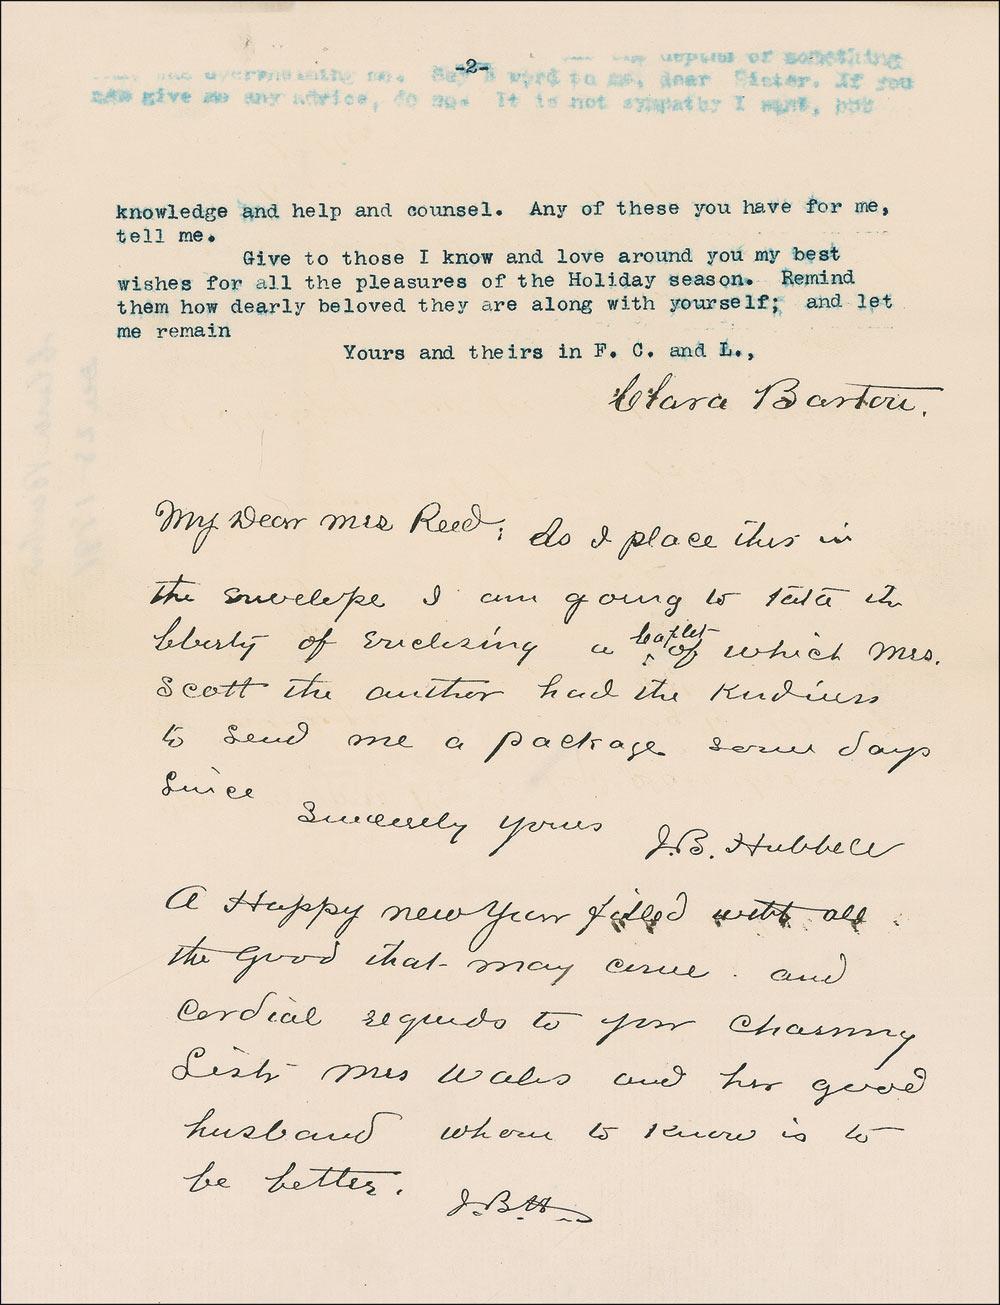 -2-
depths of something
was overwhelming me. Say a word to me, dear Sister. If you
can give me any advice, do so. It is not sympathy I want, but
knowledge and help and counsel. Any of these you have for me,
tell me.
Give to those I know and love around you my best
wishes for all the pleasures of the Holiday season. Remind
them how dearly beloved they are along with yourself; and let
me remain
Yours and theirs in F. C. and L.,
Clara Barton.
My Dear Mrs Reed; As I place this in
the envelope I am going to take the
liberty of enclosing a leaflet of which Mrs.
Scott the author had the kindness
to send me a package some days
since
Sincerely yours
J.B. Hubbell
A Happy new Year filled with all
the good that may come. and
cordial regards to your charming
Sister Mrs Wales and her good
husband whom to know is to
be better.
J.B.H.